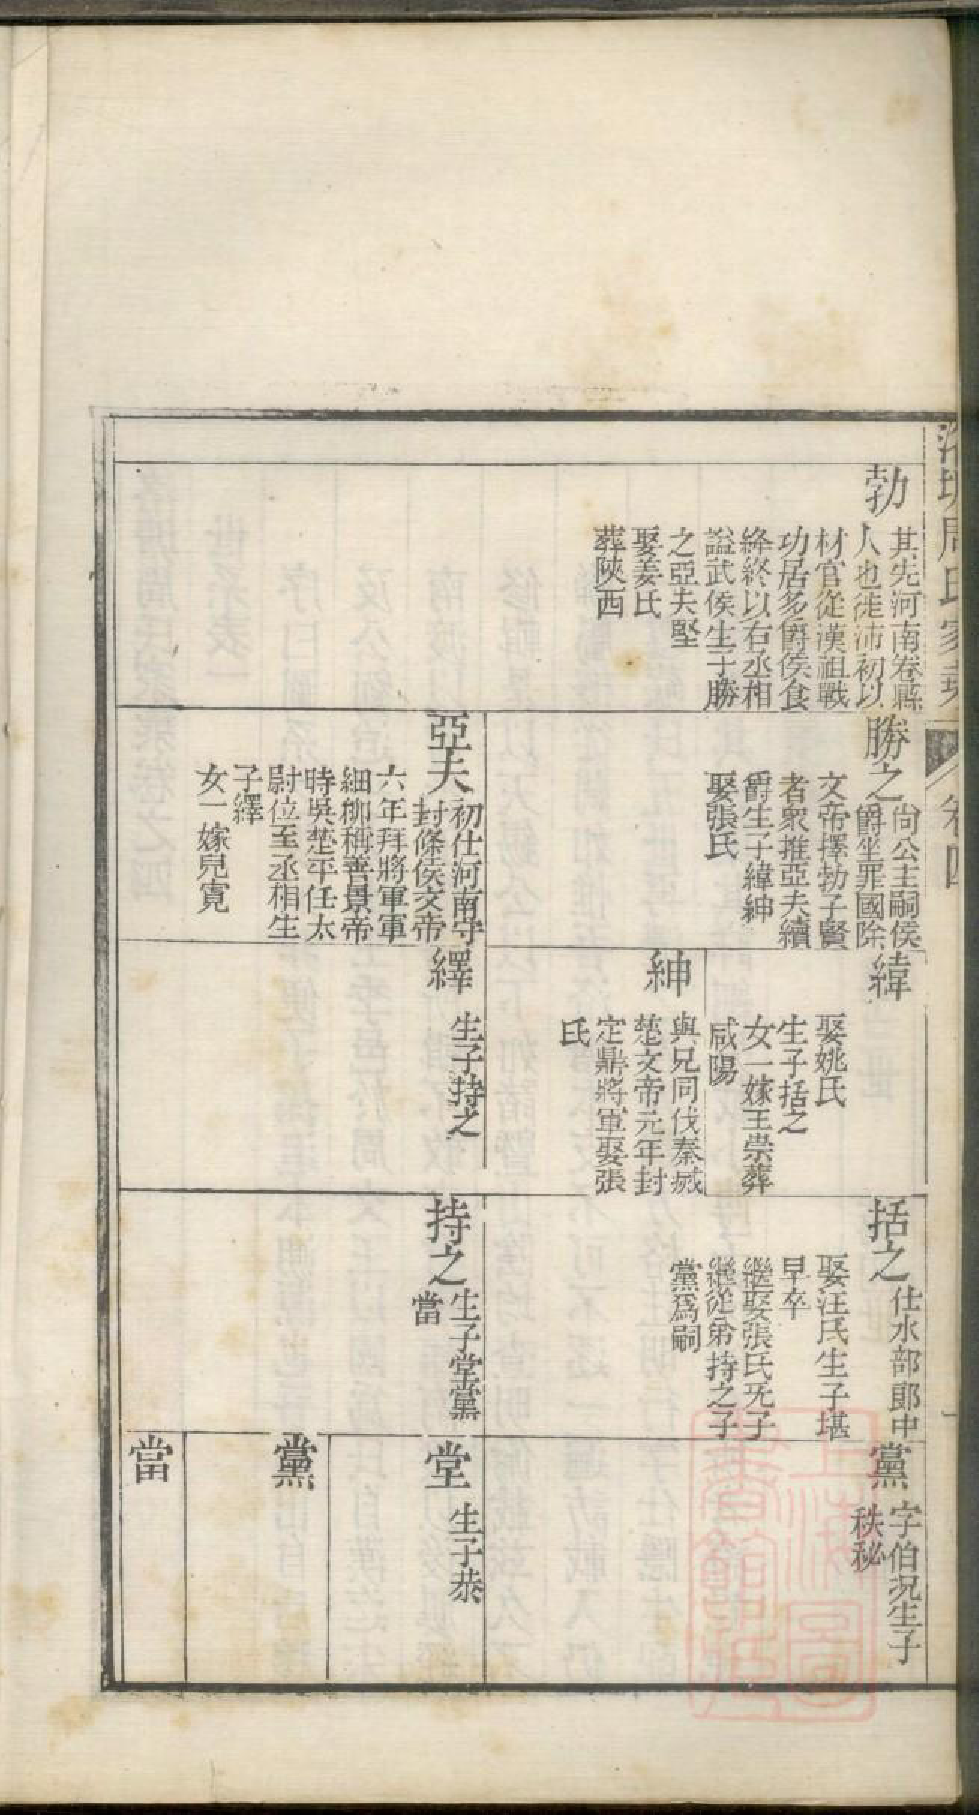 洛塘周氏家乘
卷四
一
勃
其先河南卷縣
人也徙沛初以
材官從漢祖戰
功居多爵侯食
絳終以右丞相
諡武侯生子勝
之亞夫堅
娶姜氏
葬陝西
勝之
尙公主嗣侯
爵坐罪國除
文帝擇勃子賢
者衆推亞夫續
爵生子緯紳
娶張氏
亞夫
初仕河南守
封條侯文帝
六年拜將軍軍
細柳稱善景帝
時吳楚平任太
尉位至丞相生
子繹
女一嫁兒寬
緯
娶姚氏
生子括之
女一嫁王崇葬
咸陽
紳
與兄同伐秦滅
楚文帝元年封
定鼎將軍娶張
氏
繹
生子持之
括之
仕水部郞中
娶汪氏生子堪
早卒
繼娶張氏旡子
繼從弟持之子
黨爲嗣
持之
生子堂黨
當
黨
字伯況生子
秩秘
堂
生子恭
黨
當